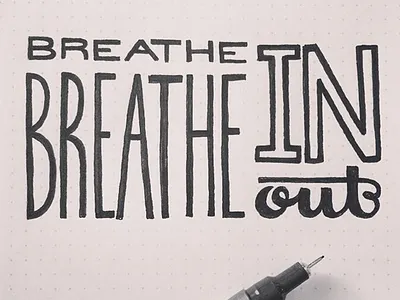 BREATHE IN
BREATHE out